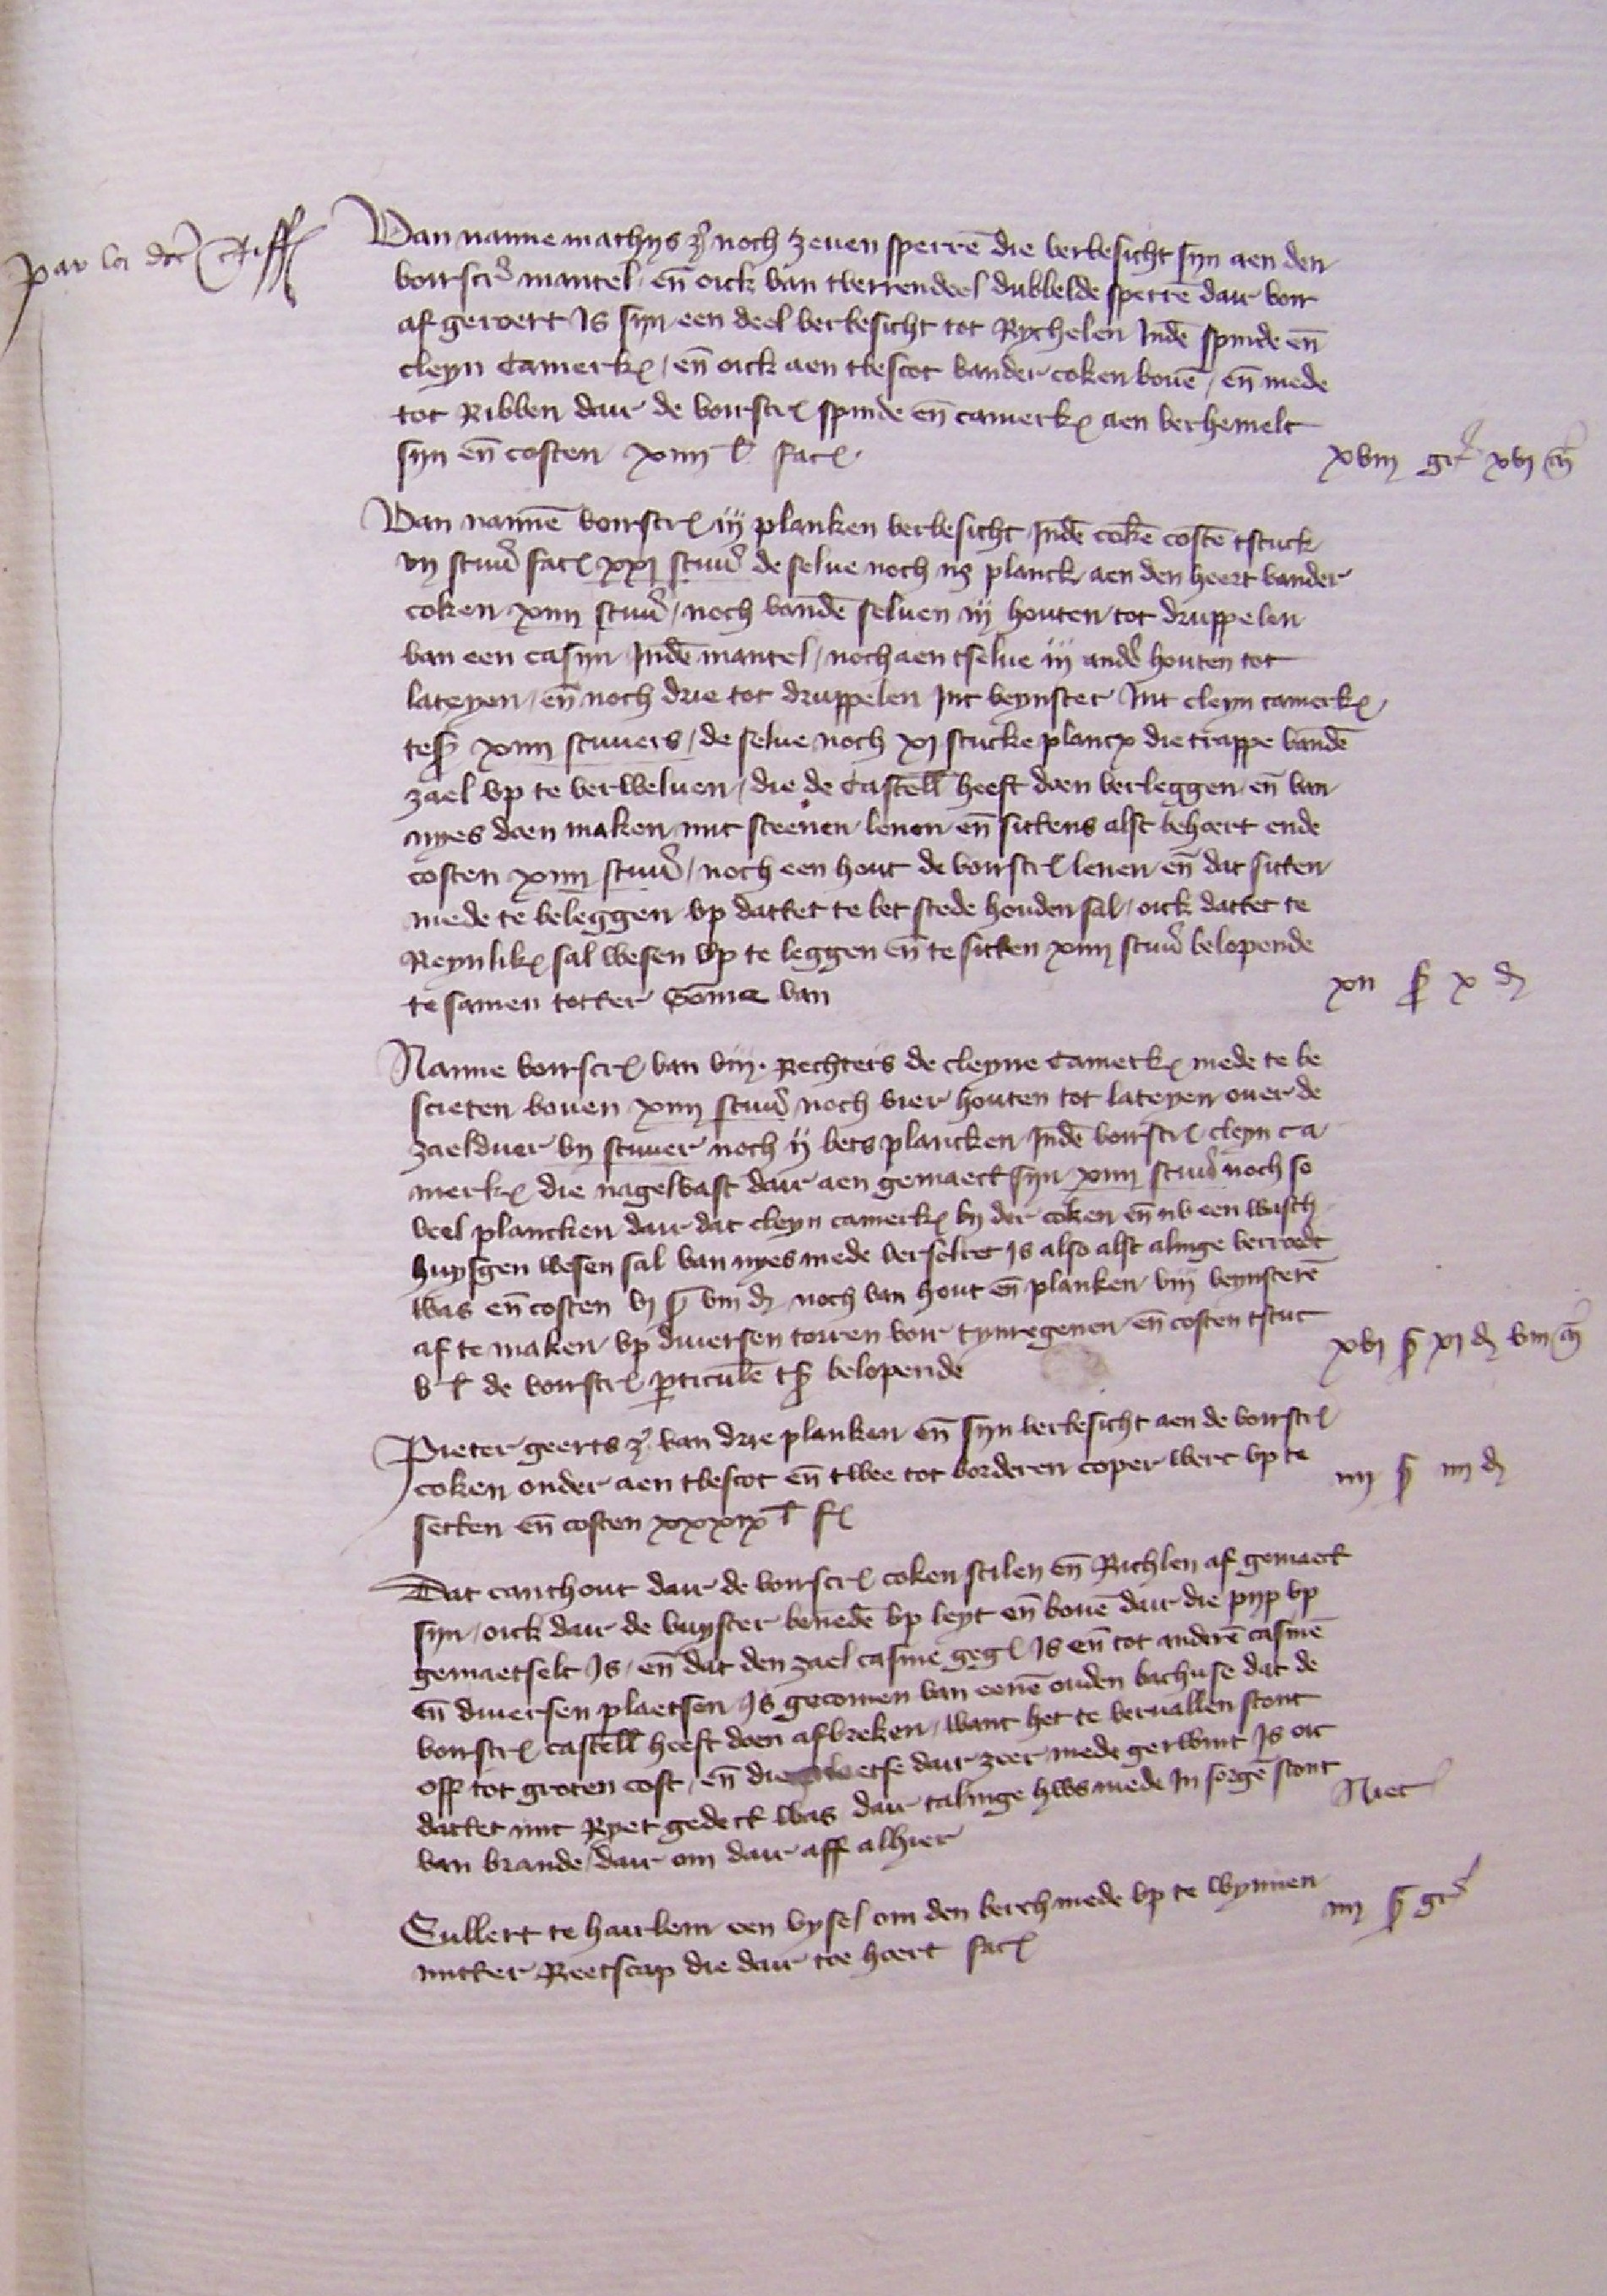 par la dce certiff
Van nanne mathijs zn noch zeuen sperrē die verbesicht sijn aen den
voirscr mantel / eñ oick van tverrendeel dubbelde sperrē dair voir
af geroert Is sijn een deel verbesicht tot Rychelen Indē spinde eñ
cleyn camerkn / eñ oick aen tbescot vander coken bouē / eñ mede
tot Ribben dair de voirscr spinde eñ camerkn aen verhemelt
sijn eñ costen xiiij l facn
xviij gr xvj m
Van nannē voirscr iij planken verbesicht Indē cokē costē tstuck
vij stuu facn xxj stuu de selue noch planck aen den heert vander
coken xiiij stuu / noch vandē seluen iij houten tot druppelen
van een casijn Indē mantel / noch aen tselue iij ander houten tot
lateyen / eñ noch drie tot druppelen Int veynster Int cleyn camerkn
tes xiiij stuuers / de selue noch xj stucke plancx die trappe vandē
zael vp te verweluen / die de castell heeft doen verleggen eñ van
nyes doen maken mit steenen lenen eñ sittens alst behoert ende
costen xiiij stuu / noch een hout de voirscr lenen eñ dat sitten
mede te beleggen vp dattet te bet stede houden sal / oick dattet te
Reynlikn sal wesen vp te leggen eñ te sitten xiiij stuu belopende
te samen totter Somme van
xij s x d
Nanne voirscr van viij Rechters de cleyne camerkn mede te be
scieten bouen xiiij stuu noch vier houten tot lateyen ouer de
zaelduer vij stuuer noch ij bets plancken Indē voirscr cleyn ca
merkn die nagelvast dair aen gemaect sijn xiiij stuu noch so
veel plancken dair dat cleyn camerkn bij der coken eñ nv een wasch
huysgen wesen sal van nyes mede verseltet Is also alst alinge verroedt
was eñ costen vj s viij d noch van hout eñ planken viij veynsterē
af te maken vp diuersen torren voir tynregenen eñ costen tstuc
v l de voirscr pticulē ts belopende
xvj s xj d viij m
Pieter geerts zn van drie planken eñ sijn verbesicht aen de voirscr
coken onder aen tbescot eñ twee tot borderen coper werc vp te
setten eñ costen xxxix l fn
iiij s iiij d
Dat canthout dair de voirscr coken stilen eñ Richlen af gemaect
sijn / oick dair de vuyster benedē vp leyt eñ bouē dair die pijp vp
gemaetselt Is / eñ dat den zael casine gegn Is eñ tot anderē casinē
eñ diuersen plaetsen Is gecomen van eenē ouden bachuse dat de
voirscr castell heeft doen afbreken / want het te veruallen stont
off tot groten cost / eñ die plaetse dair zeer mede geruimt Is oic
dattet mit Ryet gedect was dair talinge hws mede In sorgē stont
van brande / dair om dair aff alhier
Niet
Eullert te hairlem een vysel om den berch mede vp te wynnen
mitter Reetscap die dair toe hoert facn
iiij s gr